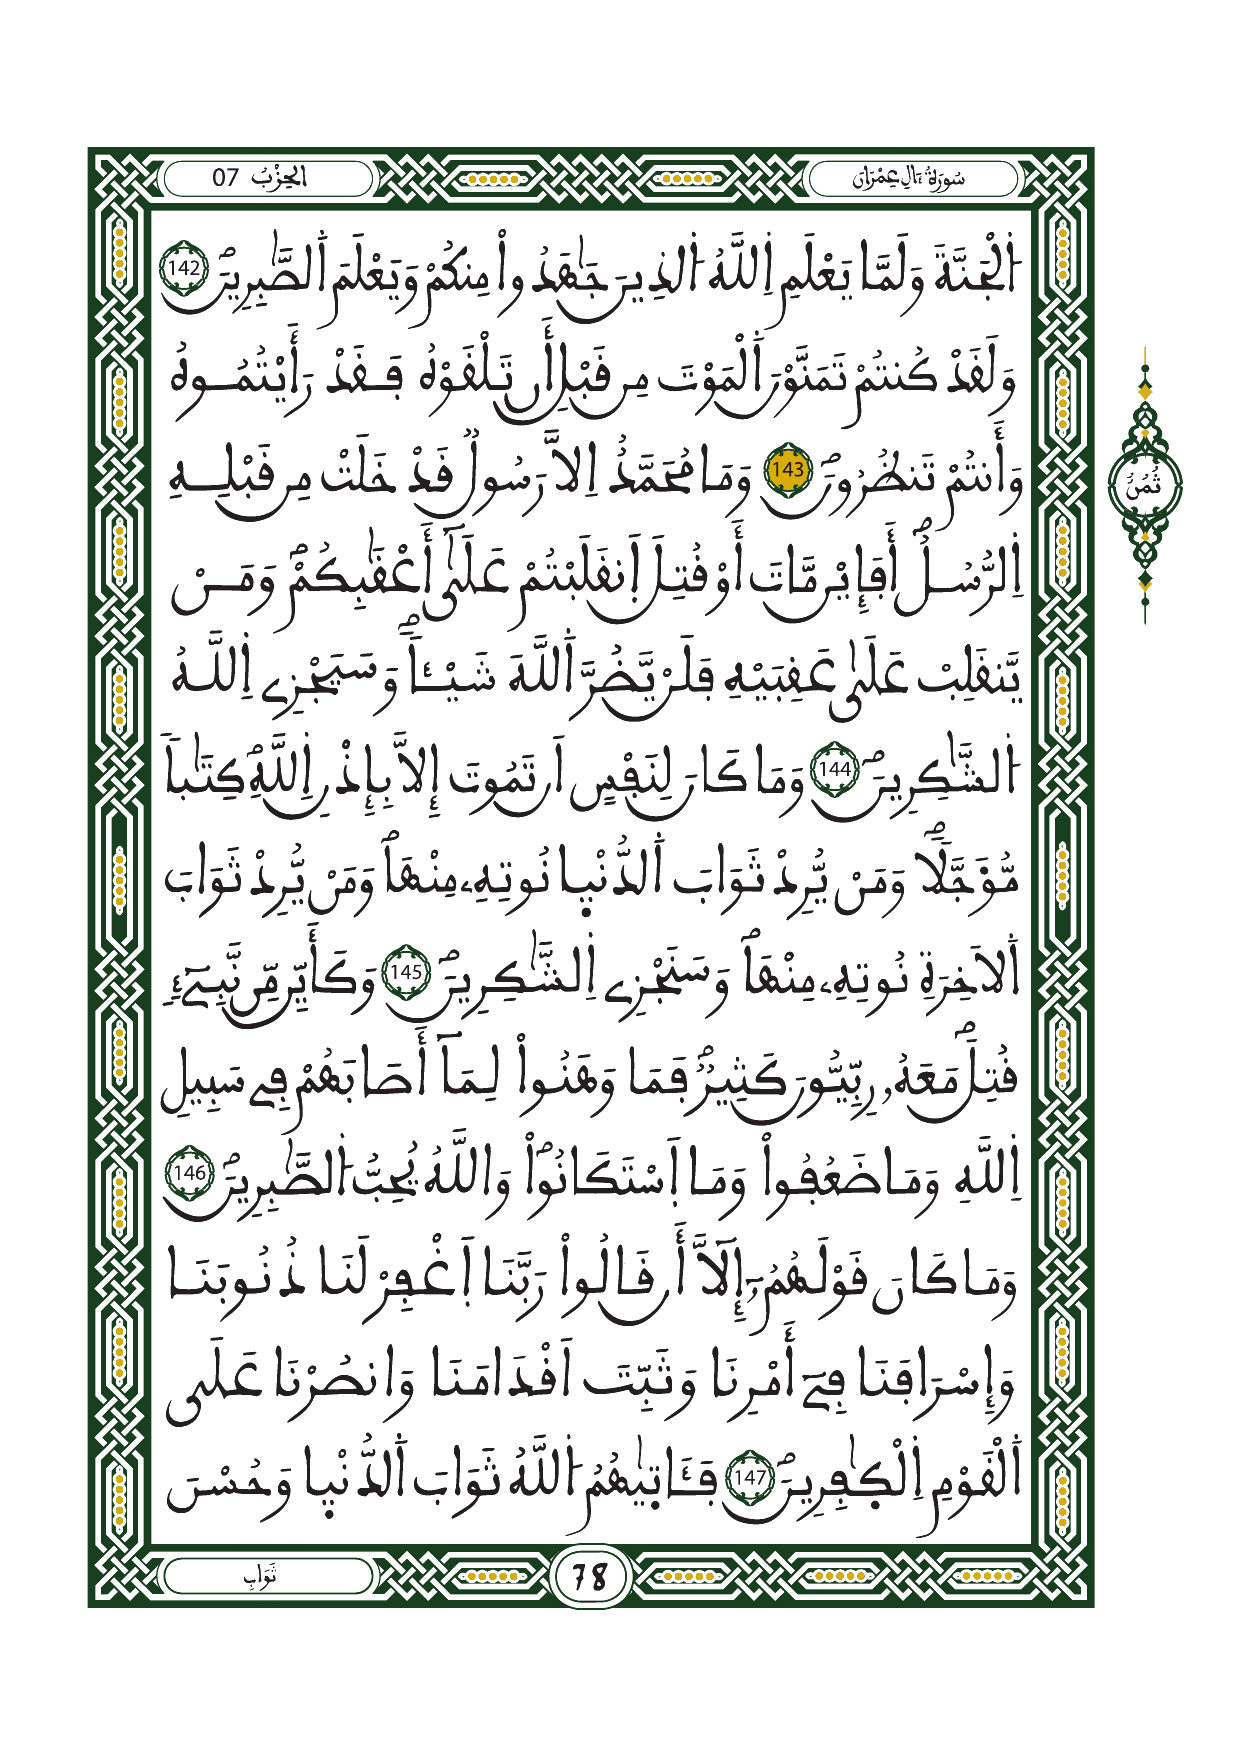 سُورَةُ ءَالِ عِمْرَانَ
الْحِزْبُ 07
اَ۬لْجَنَّةَ وَلَمَّا يَعْلَمِ اِ۬للَّهُ اُ۬لذِينَ جَٰهَدُواْ مِنكُمْ وَيَعْلَمَ اَ۬لصَّٰبِرِينَۖ 142
وَلَقَدْ كُنتُمْ تَمَنَّوْنَ اَ۬لْمَوْتَ مِن قَبْلِ أَن تَلْقَوْهُ فَقَدْ رَأَيْتُمُوهُ
وَأَنتُمْ تَنظُرُونَۖ 143 وَمَا مُحَمَّدٌ اِلَّا رَسُولٌ قَدْ خَلَتْ مِن قَبْلِهِ
ثُمُنُ
اِ۬لرُّسُلُۖ أَفَإِيْن مَّاتَ أَوْ قُتِلَ اَ۪نقَلَبْتُمْ عَلَىٰٓ أَعْقَٰبِكُمْۖ وَمَنْ
يَّنقَلِبْ عَلَىٰ عَقِبَيْهِ فَلَنْ يَّضُرَّ اَ۬للَّهَ شَيْـٔاٗۖ وَسَيَجْزِے اِ۬للَّهُ
اُ۬لشَّٰكِرِينَۖ 144 وَمَا كَانَ لِنَفْسٍ اَن تَمُوتَ إِلَّا بِإِذْنِ اِ۬للَّهِۖ كِتَٰباٗ
مُّؤَجَّلاٗۖ وَمَنْ يُّرِدْ ثَوَابَ اَ۬لدُّنْي۪ا نُوتِهِۦ مِنْهَاۖ وَمَنْ يُّرِدْ ثَوَابَ
اَ۬لَاخِرَةِ نُوتِهِۦ مِنْهَاۖ وَسَنَجْزِے اِ۬لشَّٰكِرِينَۖ 145 وَكَأَيِّن مِّن نَّبِےٓءٖ
قُتِلَۖ مَعَهُۥ رِبِّيُّونَ كَثِيرٞۖ فَمَا وَهَنُواْ لِمَآ أَصَابَهُمْ فِے سَبِيلِ
اِ۬للَّهِ وَمَا ضَعُفُواْ وَمَا اَ۪سْتَكَانُواْۖ وَاللَّهُ يُحِبُّ اُ۬لصَّٰبِرِينَۖ 146
وَمَا كَانَ قَوْلَهُمُۥٓ إِلَّآ أَن قَالُواْ رَبَّنَا اَ۪غْفِرْ لَنَا ذُنُوبَنَا
وَإِسْرَافَنَا فِےٓ أَمْرِنَا وَثَبِّتَ اَقْدَامَنَا وَانصُرْنَا عَلَى
اَ۬لْقَوْمِ اِ۬لْكٰ۪فِرِينَۖ 147 فَـَٔات۪يٰهُمُ اُ۬للَّهُ ثَوَابَ اَ۬لدُّنْي۪ا وَحُسْنَ
ثَوَابِ
78